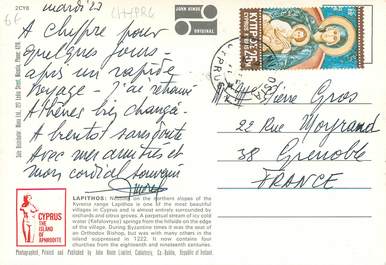 2CYB
mardi 27
6€
CHYPRE
A Chypre pour
quelques jours
après un rapide
voyage - J'ai retrouvé
Athènes bien changé
A bientôt sans doute
Avec mes amitiés et
mon cordial souvenir
JOHN HINDE
ORIGINAL
CYPRUS
THE
ISLAND
OF
APHRODITE
LAPITHOS: on the northern slopes of the
Kyrenia range Lapithos is one of the most beautiful
villages in Cyprus and is almost entirely surrounded by
orchards and citrus groves. A perpetual stream of icy cold
water (Kefalovryso) springs from the hillside on the edge of
the village. During Byzantine times it was the seat of
an Orthodox Bishop, but was with many others in the
island suppressed in 1222. It now contains four
churches from the eighteenth and nineteenth centuries.
Photographed, Printed and Published by John Hinde Limited, Cabinteely, Co. Dublin, Republic of Ireland.
CYPRUS
Pierre Gros
22 Rue Moyrand
38 Grenoble
FRANCE